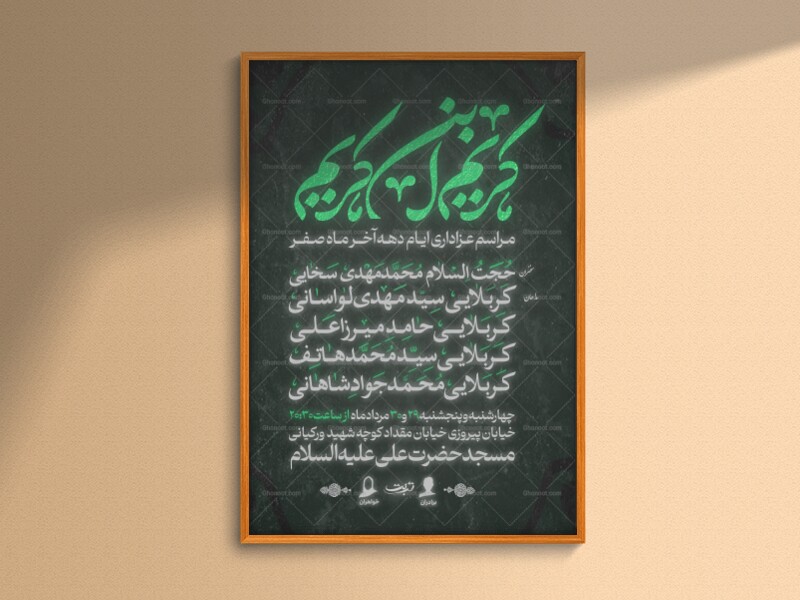 کریم بن کریم
مراسم عزاداری ایام دهه آخر ماه صفر
سخنران
حجت السلام محمدمهدی سخایی
مداحان
کربلایی سید مهدی لواسانی
کربلایی حامد میرزاعلی
کربلایی سید محمد هاتف
کربلایی محمد جواد شاهانی
چهارشنبه و پنجشنبه ۲۹ و ۳۰ مرداد ماه از ساعت ۲۰:۳۰
خیابان پیروزی خیابان مقداد کوچه شهید ورکیانی
مسجد حضرت علی علیه السلام
برادران
خواهران
Ghonoot.com